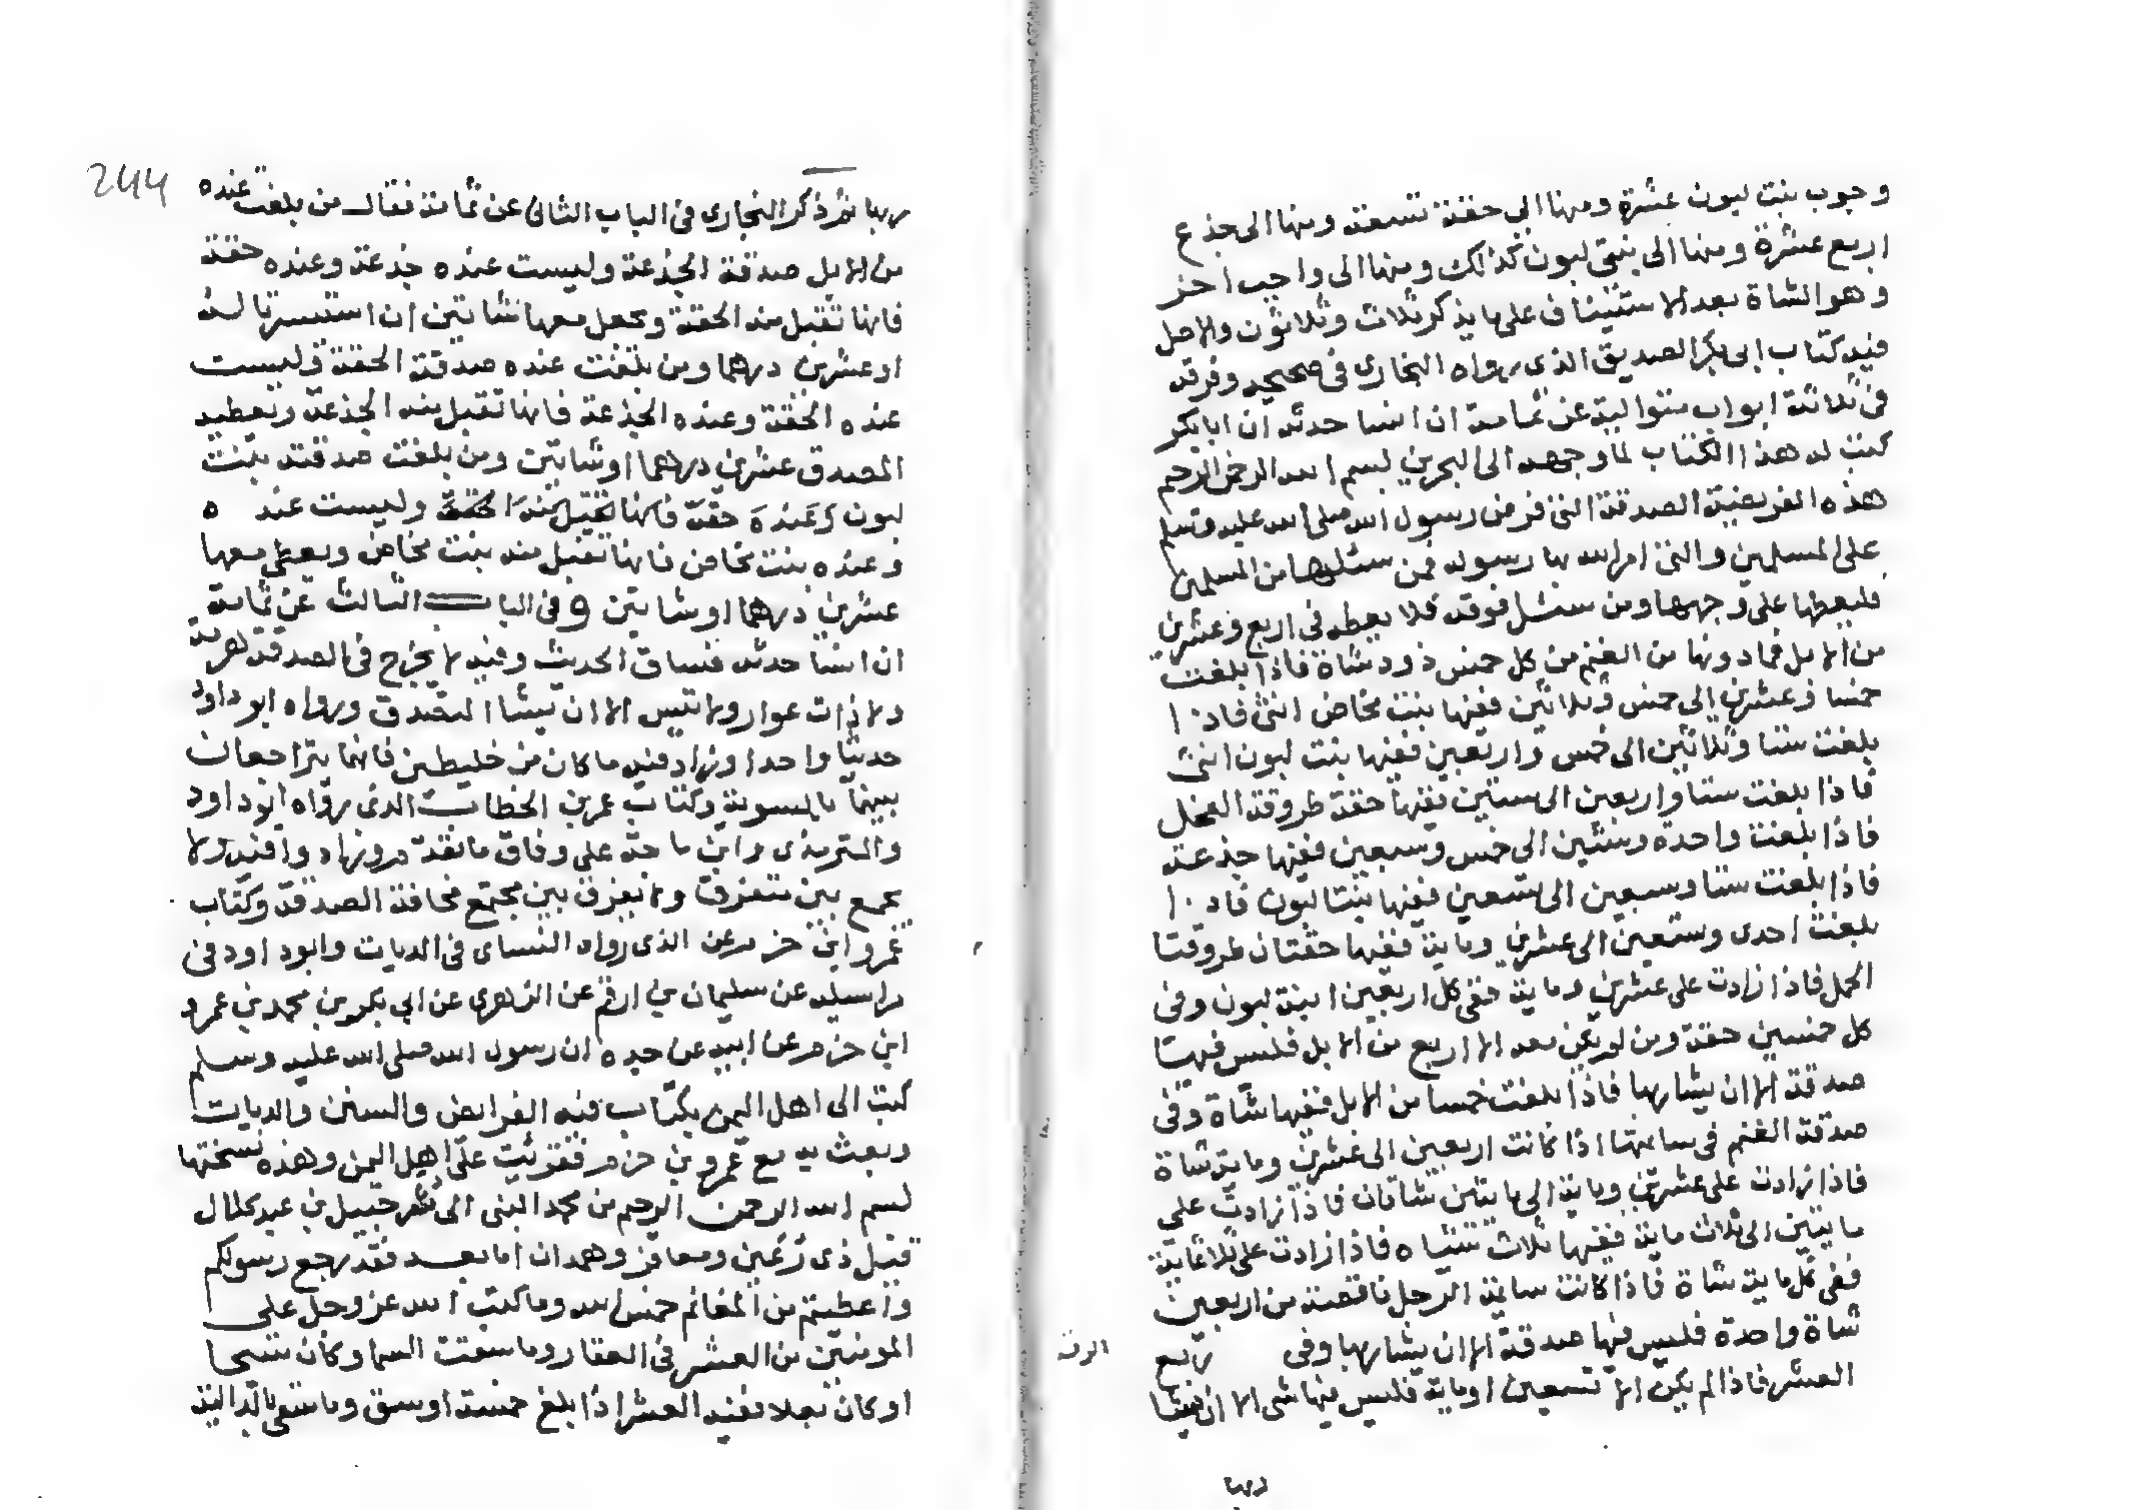 وجوب بنت لبون عشرة ومنها الى حقة تسعة ومنها الى جذع
اربع عشرة ومنها الى بنتى لبون كذلك ومنها الى واجب اخر
وهو الشاة بعد الاستيناف على ما يذكر ثلاث وثلاثون والاصل
فيه كتاب ابى بكر الصديق الذى رواه البخارى فى صحيحه وفرقه
فى ثلاثة ابواب متوالية عن ثمامة ان انسا حدثه ان ابا بكر
كتب له هذا الكتاب لما وجهه الى البحرين بسم الله الرحمن الرحيم
هذه الفريضة الصدقة التى فرض رسول الله صلى الله عليه وسلم
على المسلمين والتى امر الله بها رسوله فمن سئلها من المسلمين
فليعطها على وجهها ومن سئل فوقه فلا يعطه فى اربع وعشرين
من الابل فما دونها من الغنم من كل خمس ذود شاة فاذا بلغت
خمسا وعشرين الى خمس وثلاثين ففيها بنت مخاض انثى فاذا
بلغت ستا وثلاثين الى خمس واربعين ففيها بنت لبون انثى
فاذا بلغت ستا واربعين الى ستين ففيها حقة طروقة الفحل
فاذا بلغت واحدة وستين الى خمس وسبعين ففيها جذعة
فاذا بلغت ستا وسبعين الى تسعين ففيها بنتا لبون فاذا
بلغت احدى وتسعين الى عشرين وماية ففيها حقتان طروقتا
الجمل فاذا زادت على عشرين وماية ففى كل اربعين ابنة لبون وفى
كل خمسين حقة ومن لم يكن معه الا اربع من الابل فليس فيها
صدقة الا ان يشا ربها فاذا بلغت خمسا من الابل ففيها شاة وفى
صدقة الغنم فى سايمتها اذا كانت اربعين الى عشرين وماية شاة
فاذا زادت على عشرين وماية الى مايتين شاتان فاذا زادت على
مايتين الى ثلاث ماية ففيها ثلاث شياه فاذا زادت على ثلاثماية
ففى كل ماية شاة فاذا كانت سايمة الرجل ناقصة من اربعين
شاة واحدة فليس فيها صدقة الا ان يشا ربها وفى الرقة ربع
العشر فاذا لم يكن الا تسعين وماية فليس فيها شى الا ان يشا
ربها
244
ربها ثم ذكر البخارى فى الباب الثانى عن ثمامة فقال من بلغت عنده
من الابل صدقة الجذعة وليست عنده جذعة وعنده حقة
فانها تقبل منه الحقة ويجعل معها شاتين ان استيسرتا له
او عشرين درهما ومن بلغت عنده صدقة الحقة وليست
عنده الحقة وعنده الجذعة فانها تقبل منه الجذعة ويعطيه
المصدق عشرين درهما او شاتين ومن بلغت صدقته بنت
لبون وعنده حقة فانها تقبل منه الحقة وليست عنده
وعنده بنت مخاض فانها تقبل منه بنت مخاض ويعطى معها
عشرين درهما او شاتين وفى الباب الثالث عن ثمامة
ان انسا حدثه فساق الحديث وفيه لا يخرج فى الصدقة هرمة
ولا ذات عوار ولا تيس الا ان يشا المصدق ورواه ابو داود
حديثا واحدا وزاد فيه ما كان من خليطين فانهما يتراجعان
بينهما بالسوية وكتاب عمر بن الخطاب الذى رواه ابو داود
والترمذى وابن ماجة على وفاق ما تقدم وزاد وافيه ولا
يجمع بين متفرق ولا يفرق بين مجتمع مخافة الصدقة وكتاب
عمرو ابن حزم الذى رواه النساى فى الديات وابو داود فى
مراسيله عن سليمان بن ارقم عن الزهرى عن ابى بكر بن محمد بن عمرو
ابن حزم عن ابيه عن جده ان رسول الله صلى الله عليه وسلم
كتب الى اهل اليمن بكتاب فيه الفرايض والسنن والديات
وبعث به مع عمرو بن حزم فقرئت على اهل اليمن وهذه نسختها
بسم الله الرحمن الرحيم من محمد النبى الى شرحبيل بن عبد كلال
قيل ذى رعين ومعافر وهمدان اما بعد فقد رجع رسولكم
واعطيتم من المغانم خمس الله وما كتب الله عز وجل على
المومنين من العشر فى العقار وما سقت السما وكان سيحا
او كان بعلا ففيه العشر اذا بلغ خمسة اوسق وما سقى بالدالية